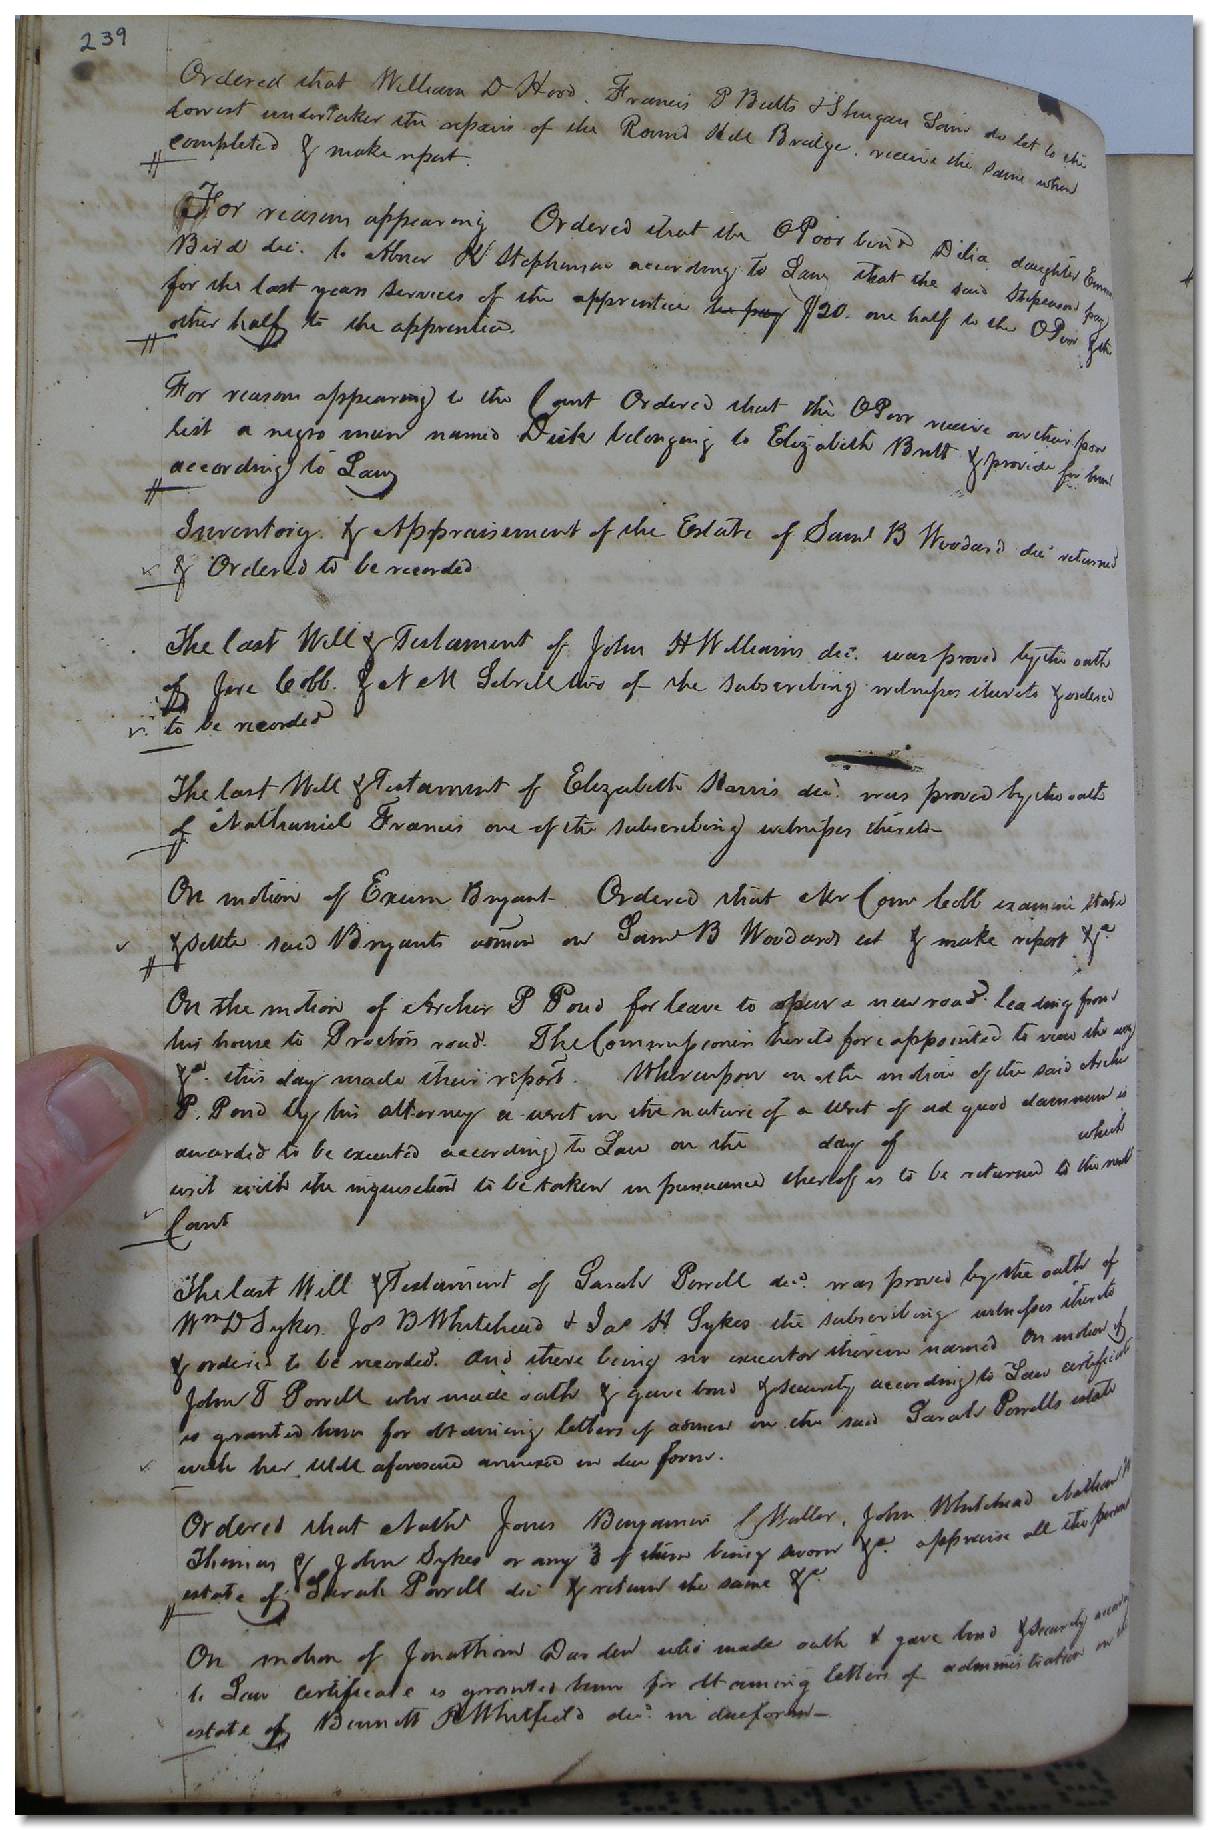 239
Ordered that William D Hood. Francis P Butts & Lain do let to the
lowest undertaker the repairs of the Round Hill Bridge. receive the same when
completed & make report.
For reasons appearing Ordered that the OPoor bind Dilia daughter Emma
Bird dec. to Abner Stephenson according to Law that the said Stepenson pay
for the last years services of the apprentice he pay $20. one half to the OPoor & the
other half to the apprentice.
For reasons appearing to the Court Ordered that the OPoor receive on their poor
list a negro man named Dick belonging to Elizabeth Britt & provide for him
according to Law
Inventory & Appraisement of the Estate of Saml B Woodard dec returned
& Ordered to be recorded
The last Will & Testament of John H Williams dec. was proved by the oath
of Jere Cobb. & N M Sebrell two of the subscribing witnesses thereto & ordered
to be recorded
The last Will & Testament of Elizabeth Harris dec. was proved by the oath
of Nathaniel Francis one of the subscribing witnesses thereto
On motion of Exum Bryant Ordered that Mr Com Cobb examine state
& settle said Bryants admon on Saml B Woodards est & make report &c.
On the motion of Archer P Pond for leave to open a new road leading from
his house to Proctors road. The Commissioners heretofore appointed to view the way
&c. this day made their report. Whereupon on the motion of the said Archer
P. Pond by his attorney a writ in the nature of a Writ of ad quod damnum is
awarded to be executed according to Law on the day of which
writ with the inquisition to be taken in pursuance thereof is to be returned to the next
Court
The last Will & Testament of Sarah Porrell dec. was proved by the oath of
Wm D Sykes. Jos B Whitehead & Jas H Sykes the subscribing witnesses thereto
& ordered to be recorded. and there being no executor therein named On motion of
John T Porrell who made oath & gave bond & security according to Law certificate
is granted him for obtaining letters of admon on the said Sarah Porrells estate
with her Will aforesaid annexed in due form.
Ordered that Nathl Jones Benjamin C Waller, John Whitehead Nathan W
Thomas & John Sykes or any 3 of them being sworn &c. appraise all the personal
estate of Sarah Porrell dec & return the same &c.
On motion of Jonathan Darden who made oath & gave bond & security according
to Law certificate is granted him for obtaining letters of administration on the
estate of Bennett Whitfield dec. in due form